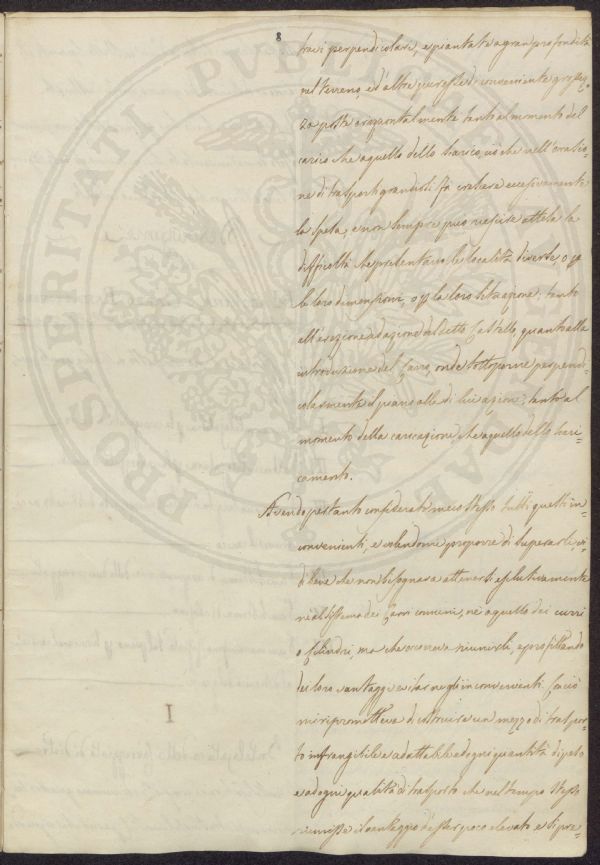 8
travi perpendicolari, e piantate a gran profondità
nel terreno, ed altre pur esse di conveniente grossez=
za poste orizzontalmente tanto al momento del
carico che a quello dello scarico, ciò che nell'occasio=
ne di trasporti grandiosi fà crescere eccessivamente
la spesa, e non sempre può riuscire attesa la
difficoltà che presentano le località diverse, o p
le loro dimensioni, o p la loro situazione; tanto
all'erezione ed azione del detto Castello, quanto alla
introduzione del Carro, onde sottoporre perpendi=
colarmente il piano alla di lui azione, tanto al
momento della caricazione, che a quello dello scari=
camento.
Avendo pertanto considerati meco stesso tutti questi in=
convenienti, e volendomi proporre di superarli, vi=
di bene che non bisognava attenersi esclusivamente
ne al sistema dei Carri comuni, ne a quello dei curri
o Cilindri, ma che occorreva riunirli, e profittando
dei loro vantaggi evitarne gli inconvenienti. Cosiò
mi ripromettevo di costruire un mezzo di traspor=
to infrangibile e adattabile ad ogni quantità di peso
e ad ogni qualità di trasporto che nel tempo stesso
riunisse il vantaggio d'esser poco elevato e di pre=
I
PROSPERITATI PVBLI